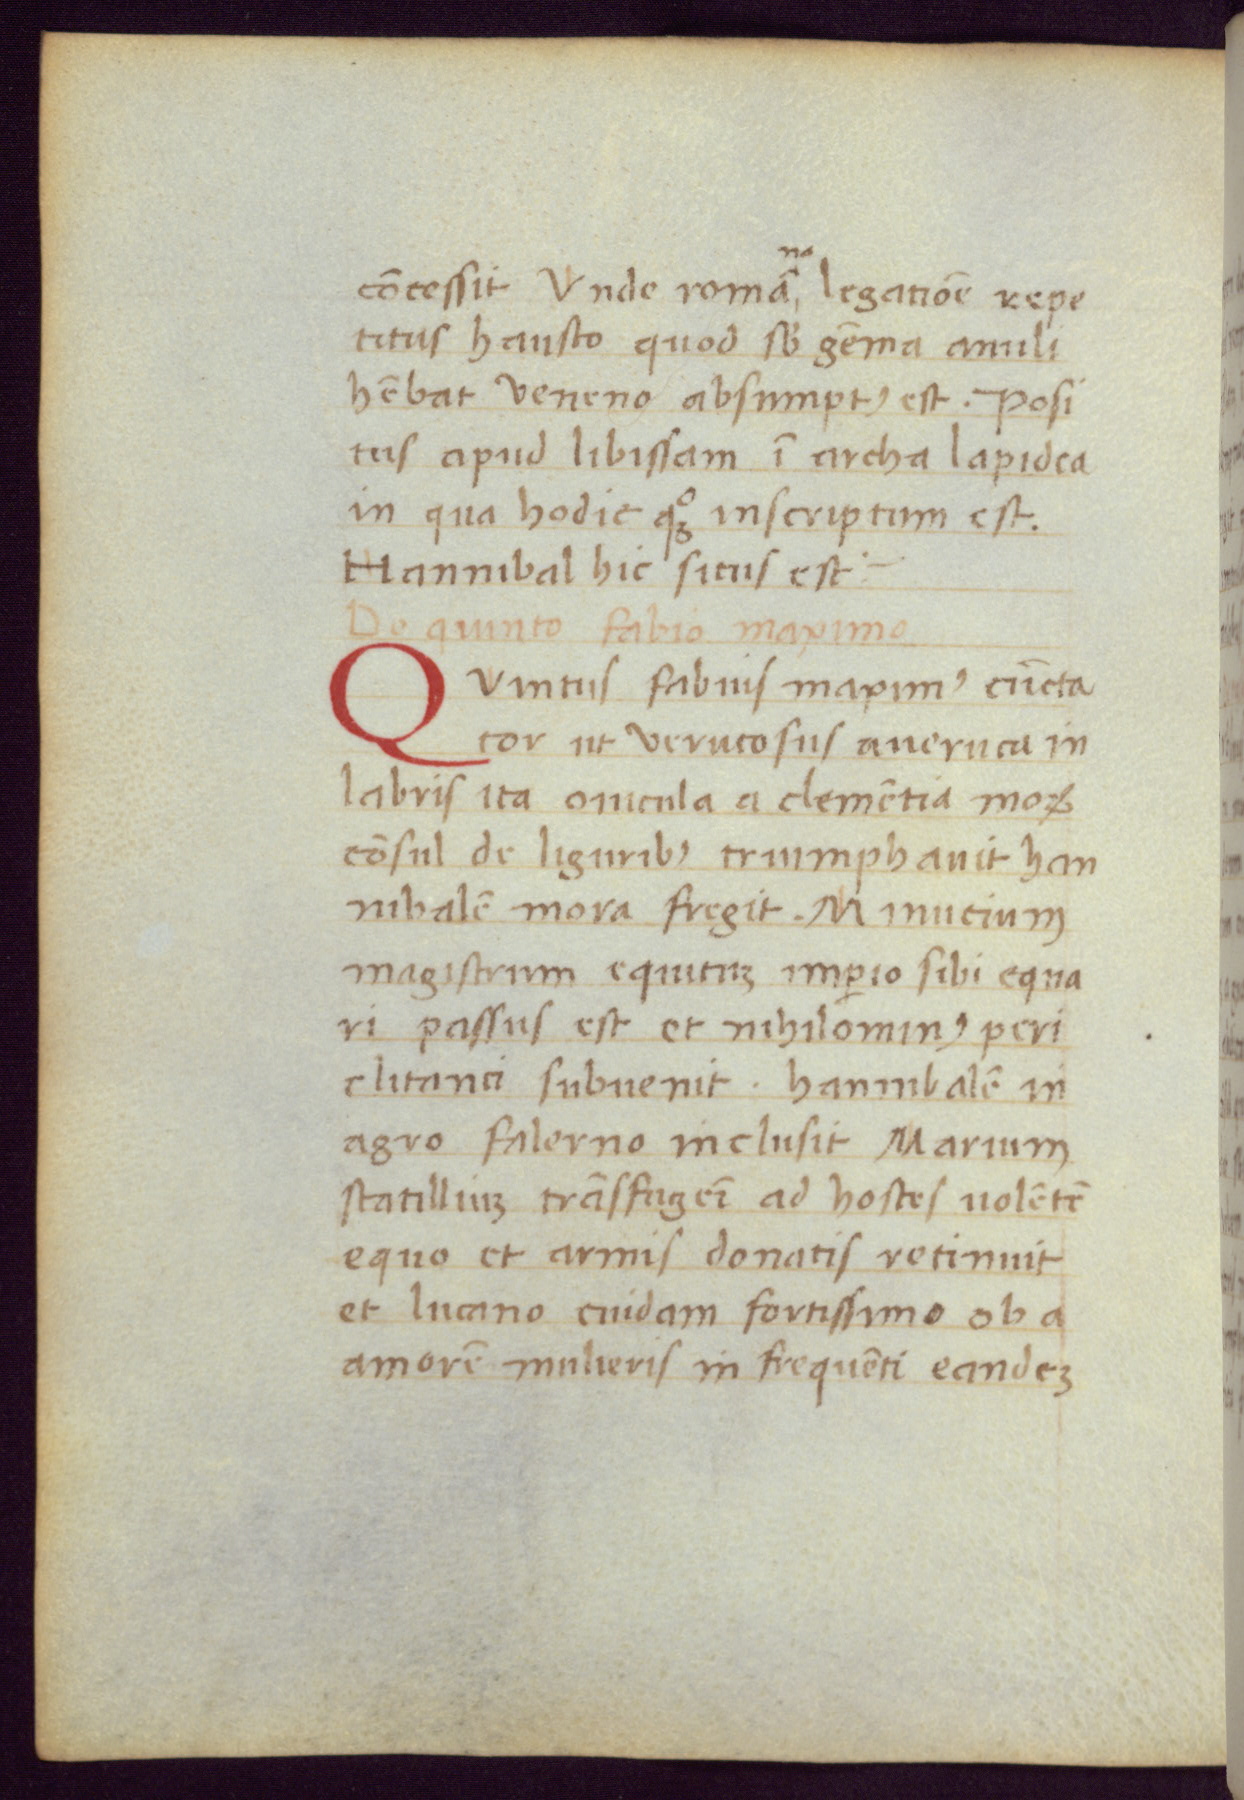 cōcessit Vnde romā na legatiōe repe
titus hausto quod sb̄ gēma anuli
hēbat veneno absumptꝰ est . Posi
tus apud libissam ī archa lapidea
in qua hodie qͦꝫ inscriptum est.
Hannibal hic situs est
De quinto fabio maximo
QVintus fabius maximꝰ cūcta
tor ut verucosus aueruca in
labris ita ouicula a clemētia moꝝ
cōsul de liguribꝰ triumphauit han
nibalē mora fregit . Minucium
magistrum equituꝫ imꝑio sibi equa
ri passus est et nihilominꝰ peri
clitanti subuenit . hannibalē in
agro falerno inclusit Marium
statilliuꝫ trāsfugeī ad hostes uolētē
equo et armis donatis retinuit
et lucano cuidam fortissimo ob a
amorē mulieris in frequēti eandeꝫ